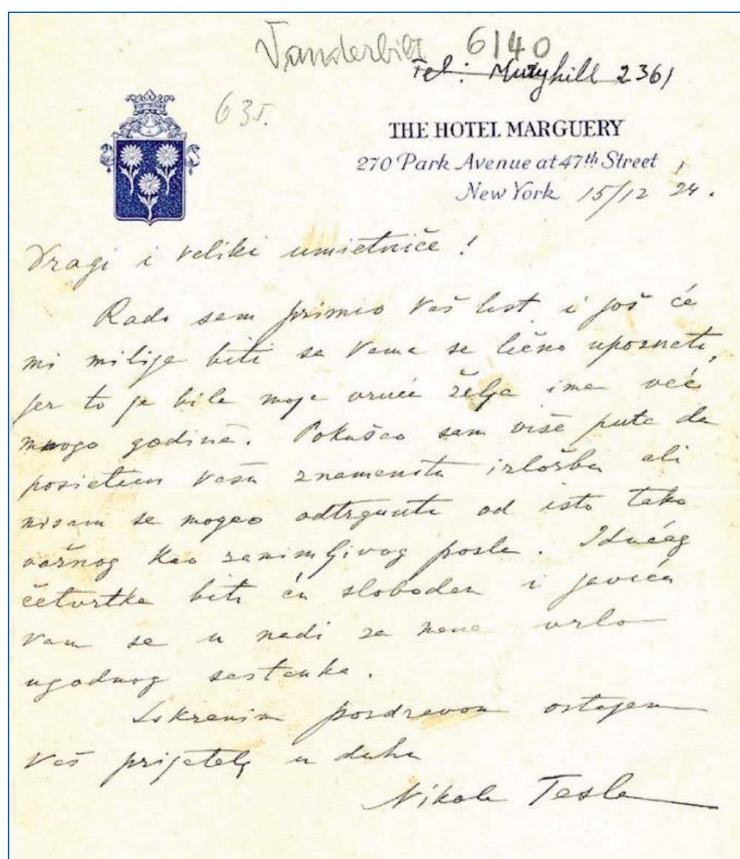 Vanderbilt 6140
Tel: Muryhill 2361
635.
THE HOTEL MARGUERY
270 Park Avenue at 47th Street
New York 15/12 24.
Dragi i veliki umietniče!
Rado sam primio Vaš list i još će
mi milije biti sa Vama se lično upoznati,
jer to je bila moja vruća želja ima već
mnogo godina. Pokušao sam više puta da
posietim Vašu znamenitu izložbu ali
nisam se mogao odtrgnuti od isto tako
važnog kao zanimljivog posla. Idućeg
četvrtka biti ću slobodan i javiću
Vam se u nadi za mene vrlo
ugodnog sastanka.
Iskrenim pozdravom ostajem
Vaš prijatelj u duhu
Nikola Tesla